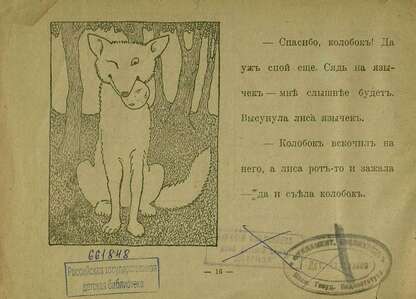 — Спасибо, колобокъ! Да
ужъ спой еще. Сядь на язы-
чекъ — мнѣ слышнѣе будетъ.
Высунула лиса язычекъ.
— Колобокъ вскочилъ на
него, а лиса ротъ-то и зажала
— да и съѣла колобокъ.
661848
Российская государственная
детская библиотека
— 16 —